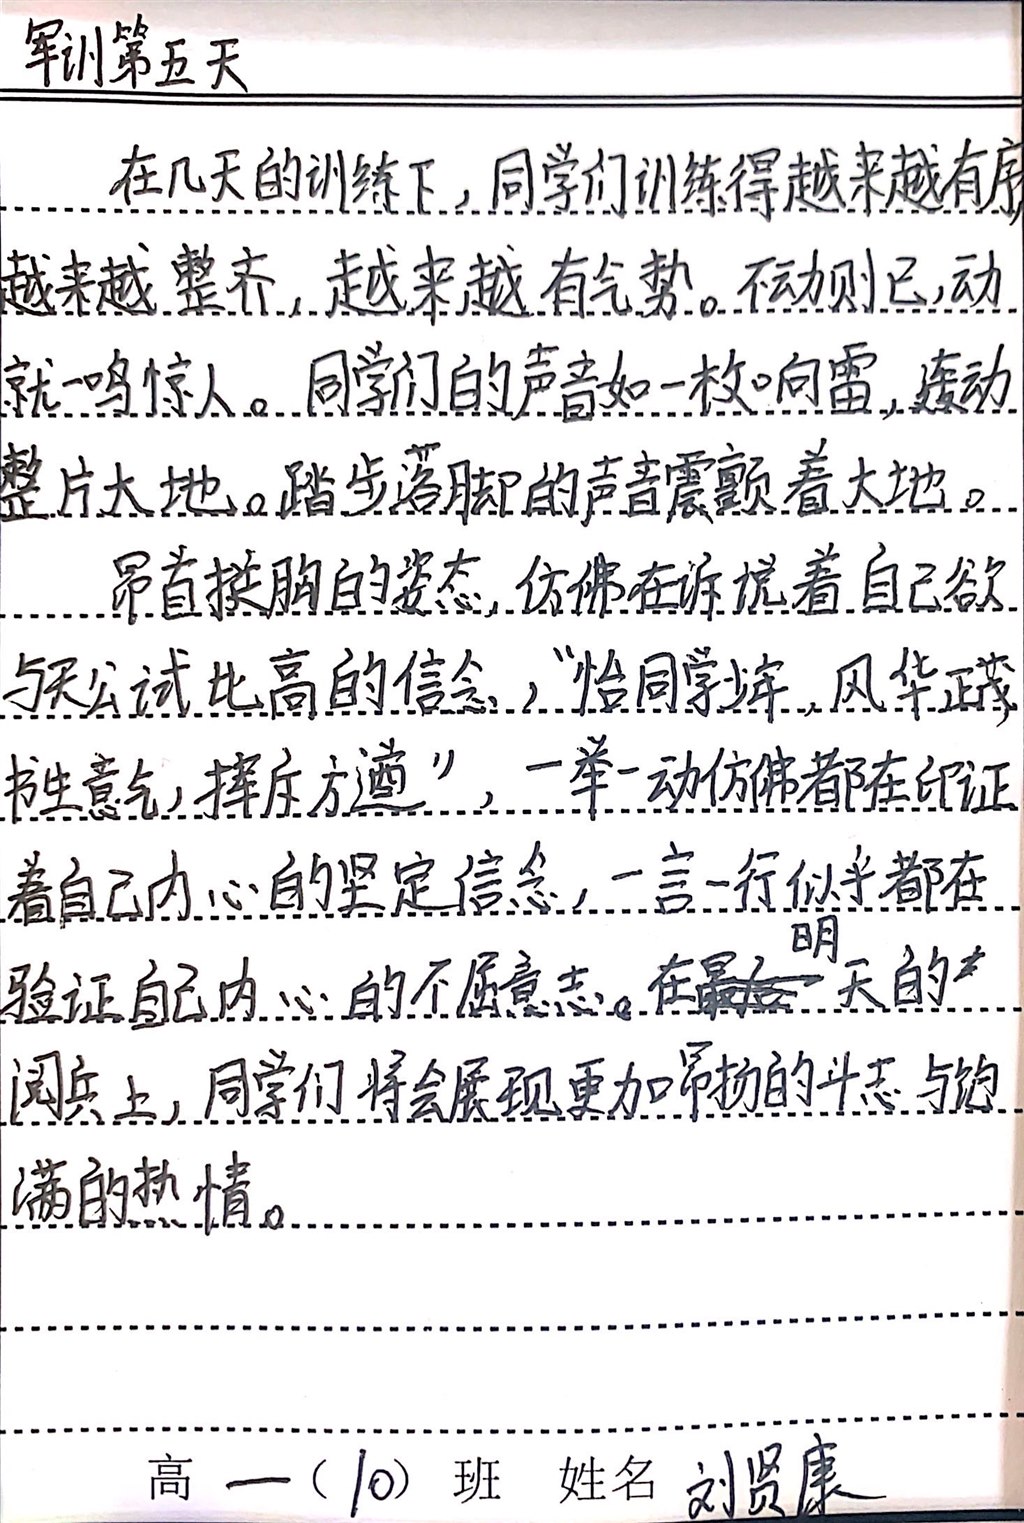 军训第五天
在几天的训练下，同学们训练得越来越有序
越来越整齐，越来越有气势。不动则已，动
就一鸣惊人。同学们的声音如一枚响雷，轰动
整片大地。踏步落脚的声音震颤着大地。
昂首挺胸的姿态，仿佛在诉说着自己欲
与天公试比高的信念，“恰同学少年，风华正茂，
书生意气，挥斥方遒”，一举一动仿佛都在印证
着自己内心的坚定信念，一言一行似乎都在
验证自己内心的不屈意志。在明天的
阅兵上，同学们将会展现更加昂扬的斗志与饱
满的热情。
高一（10）班 姓名 刘贤康